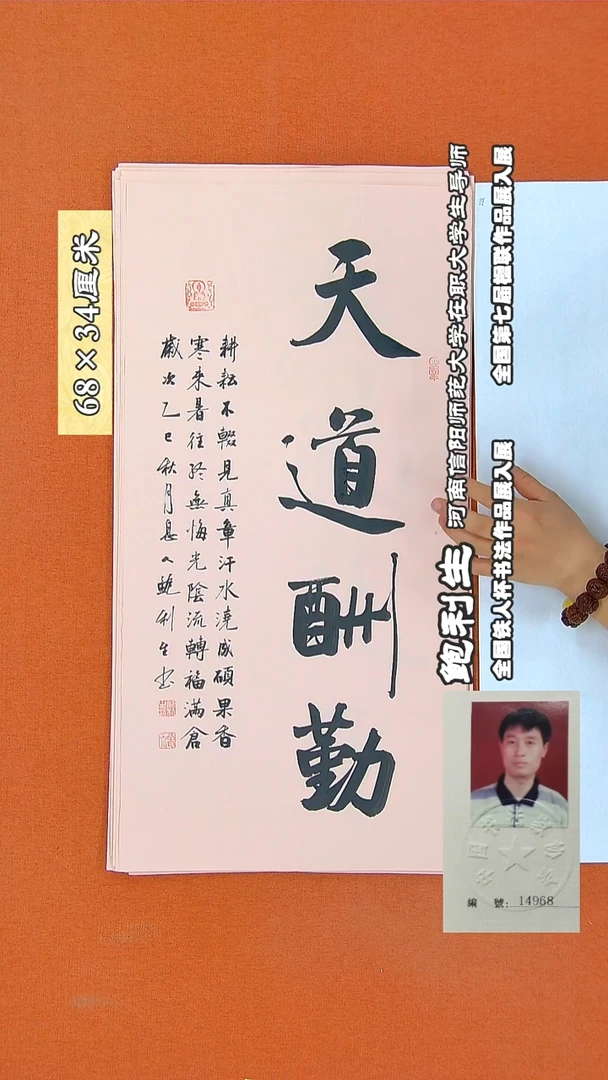 天道酬勤
耕耘不輟見真章汗水澆成碩果香
寒来暑往終無悔光陰流轉福滿倉
歲次乙巳秋月息人鮑利生书
68×34厘米
鲍利生
河南信阳师范大学在职大学生导师
全国铁人杯书法作品展入展
全国第七届楹联作品展入展
編 號: 14968